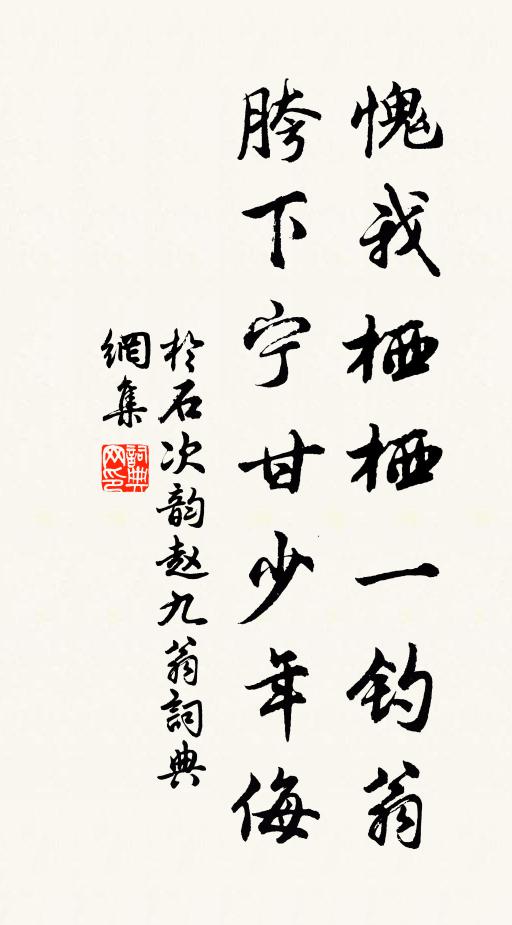 愧我栖栖一钓翁
胯下宁甘少年侮
於石次韵赵九翁詞典
網集
詞典
网印